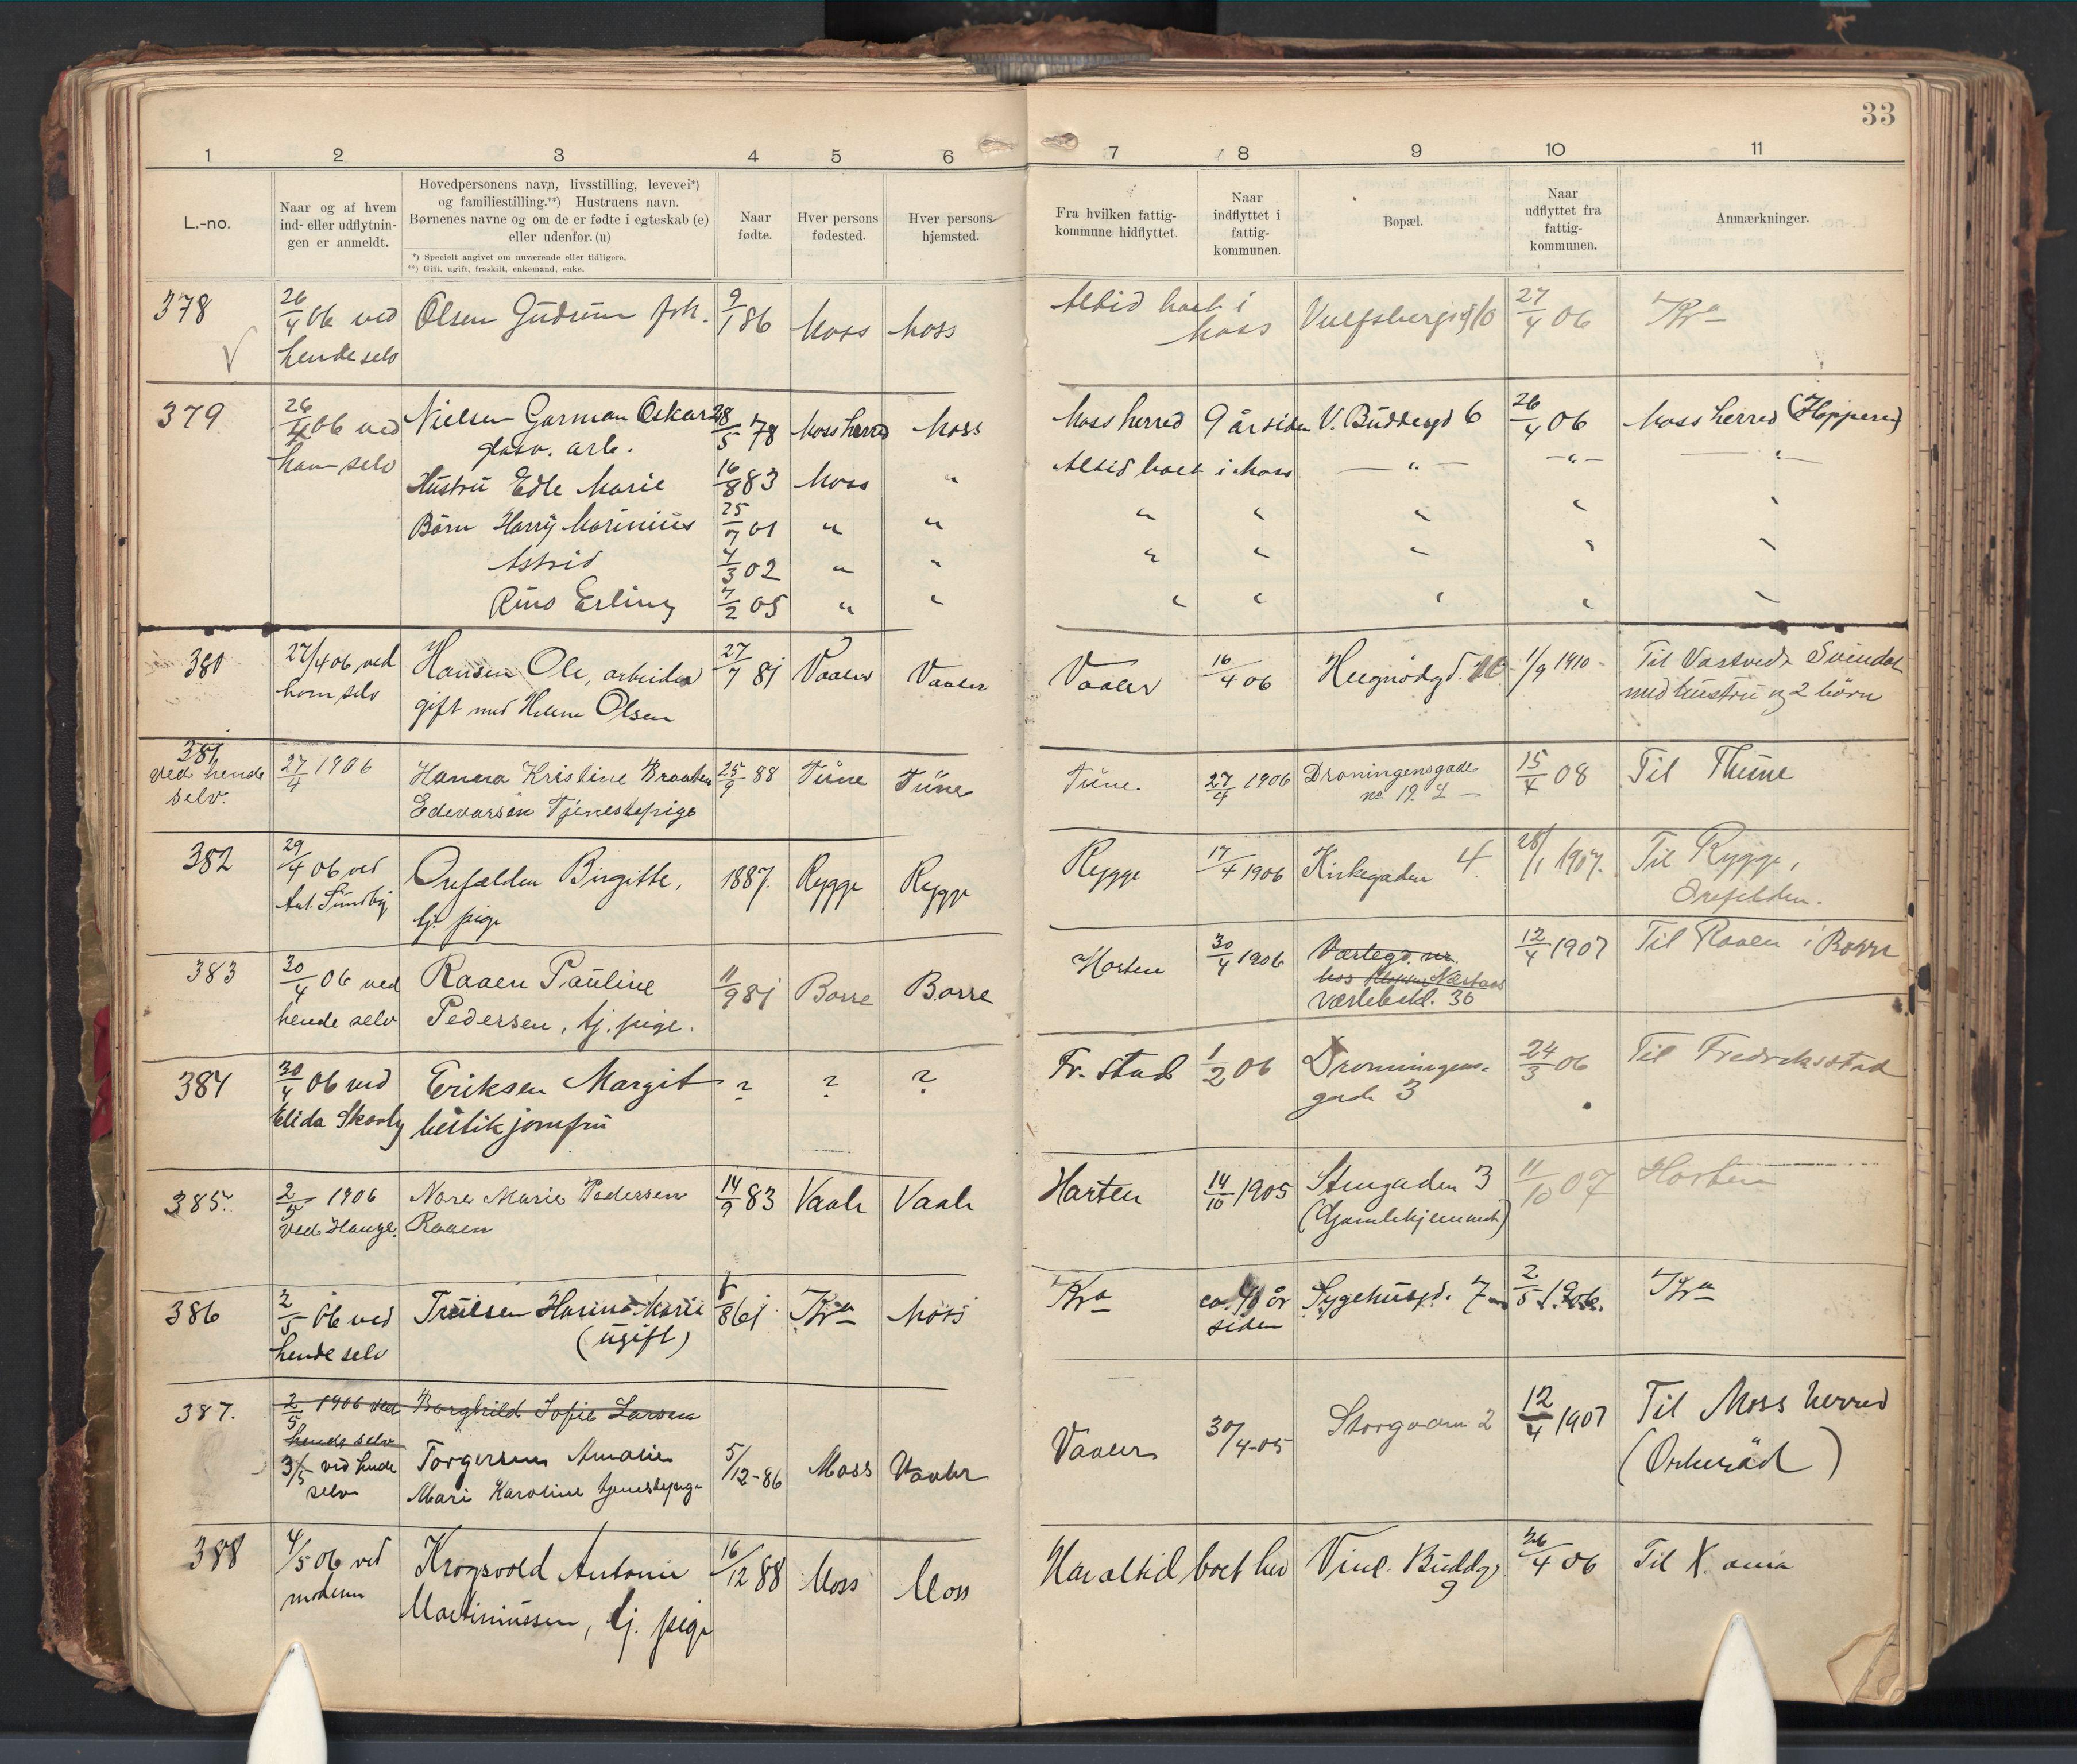 33
1 2 3 4 5 6 7 8 9 10 11
L.-no.
Naar og af hvem
ind- eller udflytnin-
gen er anmeldt.
Hovedpersonens navn, livsstilling, levevei*)
og familiestilling.**) Hustruens navn.
Børnenes navne og om de er fødte i egteskab (e)
eller udenfor. (u)
*) Specielt angivet om nuværende eller tidligere.
**) Gift, ugift, fraskilt, enkemand, enke.
Naar
fødte.
Hver persons
fødested.
Hver persons
hjemsted.
Fra hvilken fattig-
kommune hidflyttet.
Naar
indflyttet i
fattig-
kommunen.
Bopæl.
Naar
udflyttet fra
fattig-
kommunen.
Anmærkninger.
378 26/4 06 ved Olsen Gudrun frk. 9/1 86 Moss Moss Altid boet i Moss Vulfsbergsg 10 27/4 06 Kra
hende selv
379 26/4 06 ved Nielsen Garman Oskar 28/5 78 Moss herred Moss Moss herred 9 år siden V. Buddesgd 6 26/4 06 Moss herred
ham selv glasv. arb.
Hustru Edle Marie 16/8 83 Moss " Altid boet i Moss — " — — " — — " —
Børn Harry Marinius 25/7 01 " " " " " " "
Astrid 4/3 02 " " " " " " "
Erling 7/2 05 " " " " " " "
380 27/4 06 ved Hansen Ole, arbeider 27/7 81 Vaaler Vaaler Vaaler 16/4 06 10 1/9 1910 Til
ham selv gift med Helene Olsen med hustru og 2 børn
381 27/4 1906 Hanna Kristine Braaten 25/9 88 Tune Tune Tune 27/4 1906 Droningensgade 15/4 08 Til Thune
ved hende
selv. Edevarsen Tjenestepige no 19.
382 29/4 06 ved Orefælden Birgitte, 1887. Rygge Rygge Rygge 17/4 1906 Kirkegaden 4. 28/1 1907. Til Rygge,
Ant. Sundby tj. pige Orefelden.
383 30/4 06 ved Raaen Pauline 11/9 81 Borre Borre Horten 30/4 1906 12/4 1907 Til Raaen i Borre
hende selv Pedersen, tj. pige. 36
384 30/4 06 ved Eriksen Margit ? ? ? Fr. stad 1/2 06 Dronningens- 24/3 06 Til Fredriksstad
Elida Skovly jomfru gade 3
385. 2/5 1906 Nora Marie Pedersen 14/9 83 Vaale Vaale Horten 14/10 1905 Stengaden 3 11/10 07 Horten
Raaen (Gamlehjemmet)
386 2/5 06 ved Trulsen Hanna Marie 8/8 61 Kra Moss Kra ca. 40 år Sygehusgd. 7 2/5 1906. Kra
hende selv (ugift) siden
387. 2/5 1906 ved Borghild Sofie Larsen
hende selv
3/5 ved hende Torgersen Amalie 5/12-86 Moss Vaaler Vaaler 30/4-05 2 12/4 1907 Til Moss herred
selv Mari Karoline tjenestepige (Orkerød)
388 4/5 06 ved Krogsvold Antonie 16/12 88 Moss Moss Har altid boet her Vinc. Buddgd 26/4 06 Til X.ania
moderen Martiniussen, tj. pige 9